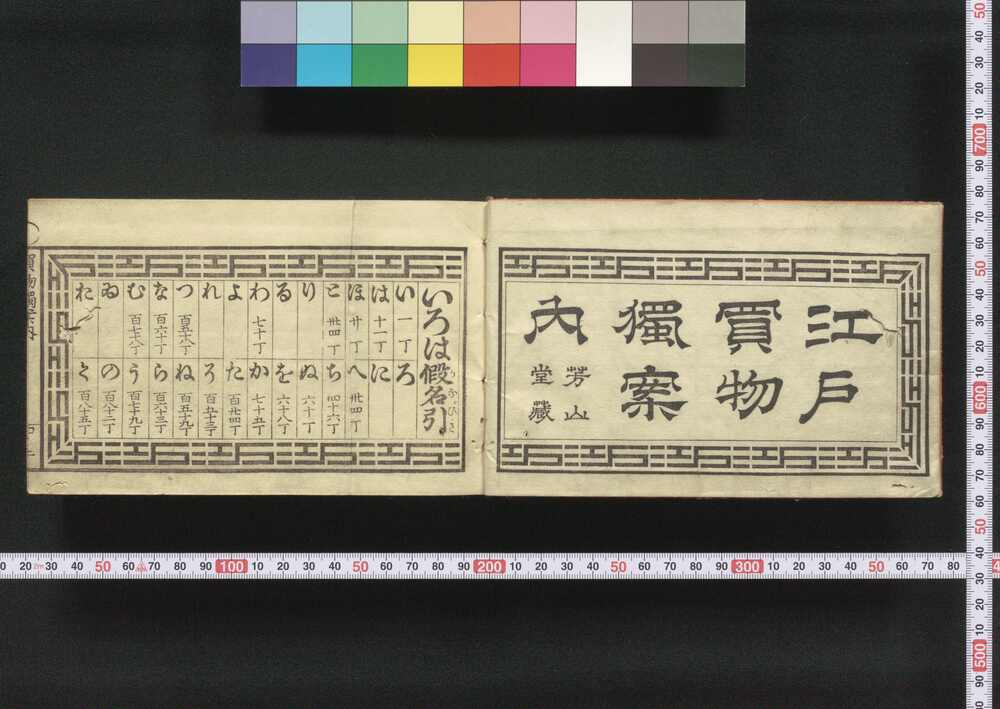 江戸
買物
獨案
内
芳山
堂藏
いろは假名引
い 一丁 ろ
は 十一丁 に
ほ 廿丁 へ 卅四丁
と 卅四丁 ち 四十六丁
り ぬ 六十丁
る を 六十八丁
わ 七十丁 か 七十五丁
よ た 百廿四丁
れ そ 百五十三丁
つ 百五十八丁 ね 百五十九丁
な 百六十丁 ら 百六十三丁
む 百七十八丁 う 百七十九丁
ゐ の 百八十二丁
お く 百八十五丁
買物獨案内